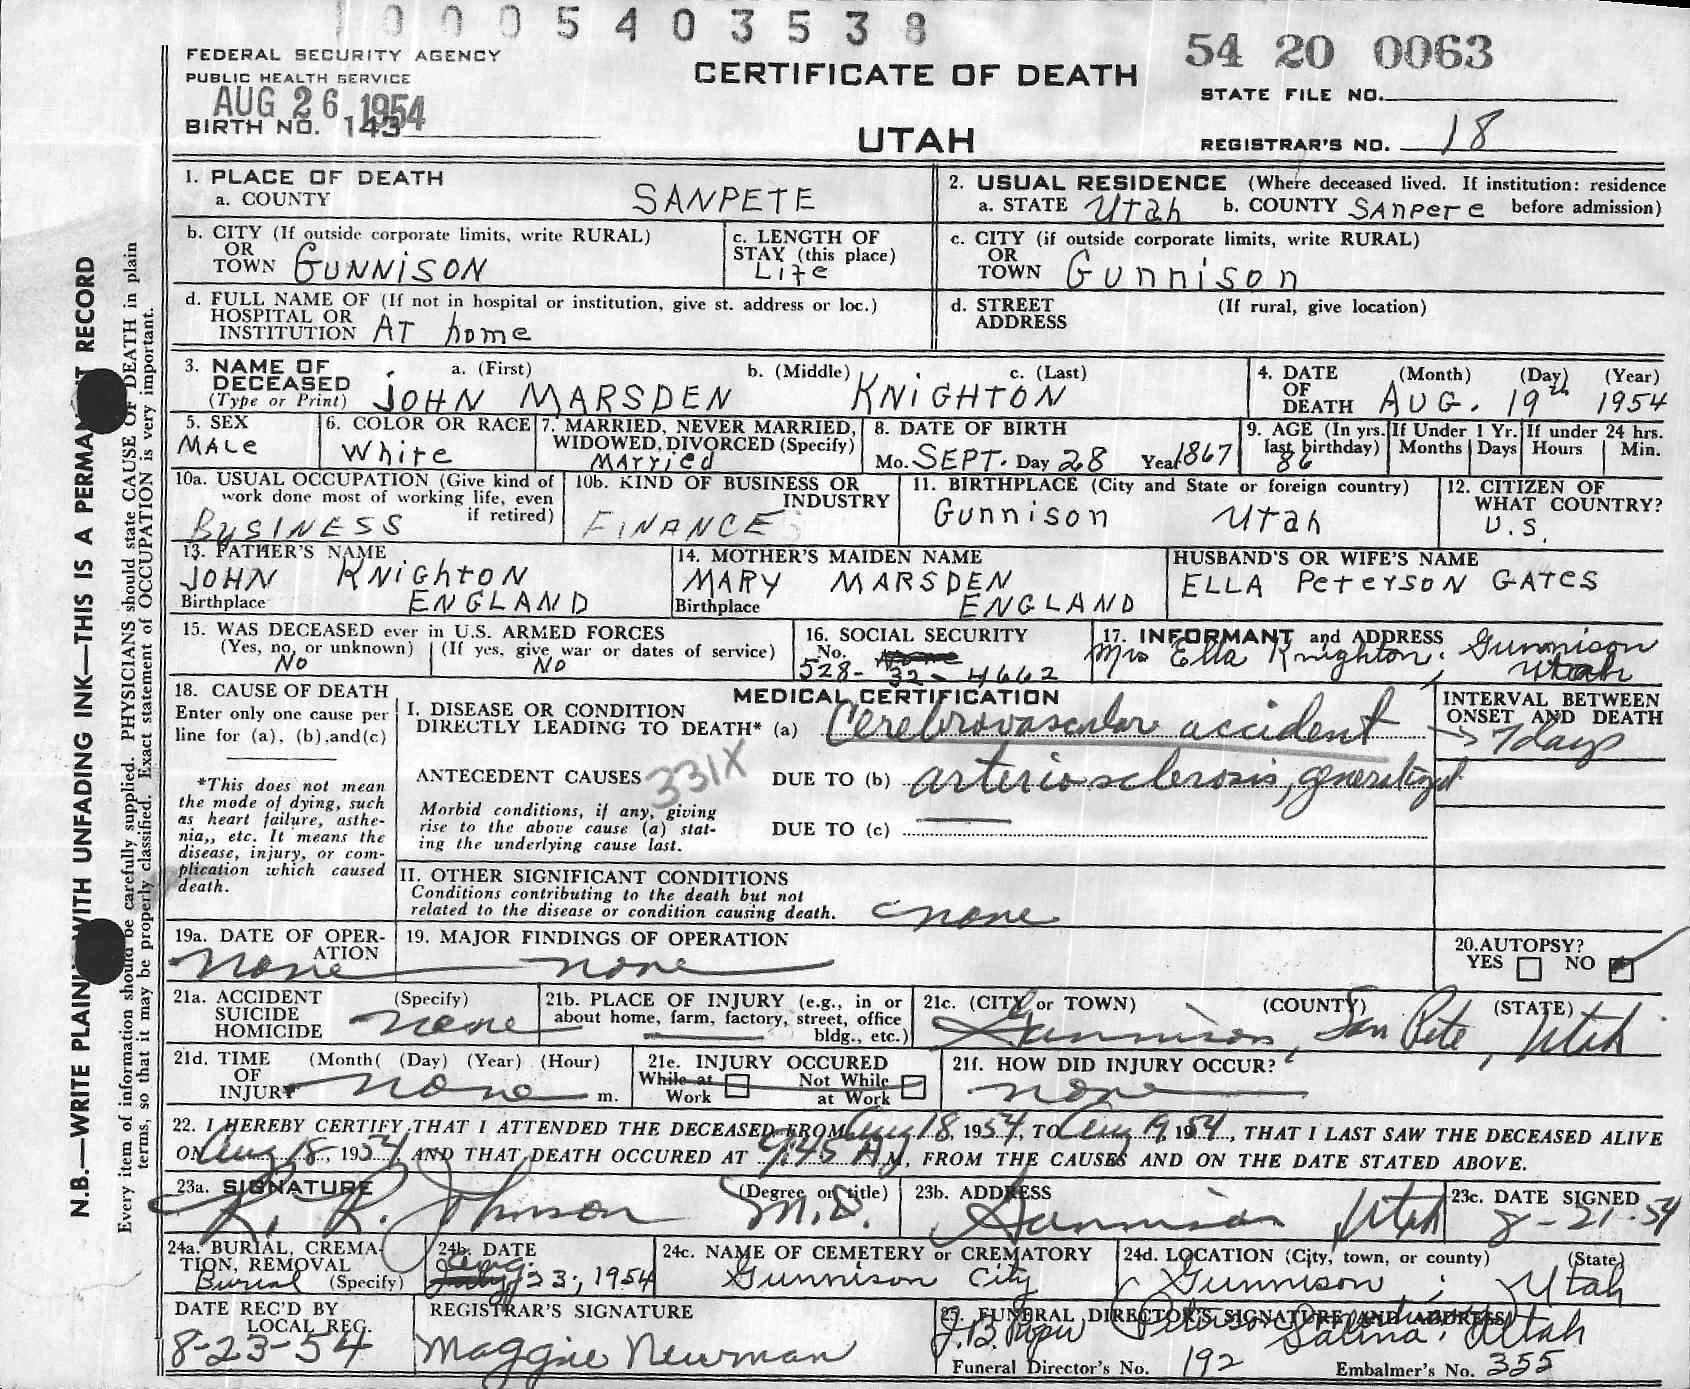 0005403538
FEDERAL SECURITY AGENCY
PUBLIC HEALTH SERVICE
AUG 26 1954
BIRTH NO. 143
CERTIFICATE OF DEATH
UTAH
54 20 0063
STATE FILE NO.
REGISTRAR'S NO. 18
N.B.—WRITE PLAINLY WITH UNFADING INK—THIS IS A PERMANENT RECORD
Every item of information should be carefully supplied. PHYSICIANS should state CAUSE OF DEATH in plain
terms, so that it may be properly classified. Exact statement of OCCUPATION is very important.
1. PLACE OF DEATH
a. COUNTY SANPETE
2. USUAL RESIDENCE (Where deceased lived. If institution: residence
a. STATE Utah b. COUNTY SANPETE before admission)
b. CITY (If outside corporate limits, write RURAL)
OR
TOWN GUNNISON
c. LENGTH OF
STAY (this place)
Life
c. CITY (if outside corporate limits, write RURAL)
OR
TOWN Gunnison
d. FULL NAME OF (If not in hospital or institution, give st. address or loc.)
HOSPITAL OR
INSTITUTION AT home
d. STREET (If rural, give location)
ADDRESS
3. NAME OF DECEASED
(Type or Print)
a. (First) b. (Middle) c. (Last)
JOHN MARSDEN KNIGHTON
4. DATE OF DEATH
(Month) (Day) (Year)
AUG. 19th 1954
5. SEX
MALE
6. COLOR OR RACE
White
7. MARRIED, NEVER MARRIED,
WIDOWED, DIVORCED (Specify)
Married
8. DATE OF BIRTH
Mo. SEPT. Day 28 Year 1867
9. AGE (In yrs.
last birthday)
86
If Under 1 Yr.
Months Days
If under 24 hrs.
Hours Min.
10a. USUAL OCCUPATION (Give kind of
work done most of working life, even
if retired)
BUSINESS
10b. KIND OF BUSINESS OR
INDUSTRY
FINANCE
11. BIRTHPLACE (City and State or foreign country)
Gunnison Utah
12. CITIZEN OF
WHAT COUNTRY?
U.S.
13. FATHER'S NAME
JOHN KNIGHTON
Birthplace ENGLAND
14. MOTHER'S MAIDEN NAME
MARY MARSDEN
Birthplace ENGLAND
HUSBAND'S OR WIFE'S NAME
ELLA PETERSON GATES
15. WAS DECEASED ever in U.S. ARMED FORCES
(Yes, no, or unknown) (If yes, give war or dates of service)
No No
16. SOCIAL SECURITY
No.
528-32-4662
17. INFORMANT and ADDRESS
Mrs Ella Knighton, Gunnison
Utah
18. CAUSE OF DEATH
Enter only one cause per
line for (a), (b), and (c)
*This does not mean
the mode of dying, such
as heart failure, asthe-
nia,, etc. It means the
disease, injury, or com-
plication which caused
death.
MEDICAL CERTIFICATION
I. DISEASE OR CONDITION
DIRECTLY LEADING TO DEATH* (a) Cerebrovascular accident
ANTECEDENT CAUSES 331X
DUE TO (b) arteriosclerosis, generalized
Morbid conditions, if any, giving
rise to the above cause (a) stat-
ing the underlying cause last.
DUE TO (c)
INTERVAL BETWEEN
ONSET AND DEATH
7 days
II. OTHER SIGNIFICANT CONDITIONS
Conditions contributing to the death but not
related to the disease or condition causing death. none
19a. DATE OF OPER-
ATION
none
19. MAJOR FINDINGS OF OPERATION
none
20. AUTOPSY?
YES NO
21a. ACCIDENT (Specify)
SUICIDE
HOMICIDE none
21b. PLACE OF INJURY (e.g., in or
about home, farm, factory, street, office
bldg., etc.)
21c. (CITY or TOWN) (COUNTY) (STATE)
Gunnison, San Pete, Utah
21d. TIME (Month( (Day) (Year) (Hour)
OF
INJURY none m.
21e. INJURY OCCURED
While at Work
Not While at Work
21f. HOW DID INJURY OCCUR?
none
22. I HEREBY CERTIFY THAT I ATTENDED THE DECEASED FROM Aug 18, 1954, TO Aug 19, 1954, THAT I LAST SAW THE DECEASED ALIVE
ON Aug 18, 1954 AND THAT DEATH OCCURED AT 9:45 A M, FROM THE CAUSES AND ON THE DATE STATED ABOVE.
23a. SIGNATURE (Degree or title)
R. R. Johnson M.D.
23b. ADDRESS
Gunnison Utah
23c. DATE SIGNED
8-21-54
24a. BURIAL, CREMA-
TION, REMOVAL
Burial (Specify)
24b. DATE
Aug. 23, 1954
24c. NAME OF CEMETERY or CREMATORY
Gunnison City
24d. LOCATION (City, town, or county) (State)
Gunnison, Utah
DATE REC'D BY
LOCAL REG.
8-23-54
REGISTRAR'S SIGNATURE
Maggie Newman
25. FUNERAL DIRECTOR'S SIGNATURE AND ADDRESS
Salina, Utah
Funeral Director's No. 192 Embalmer's No. 355